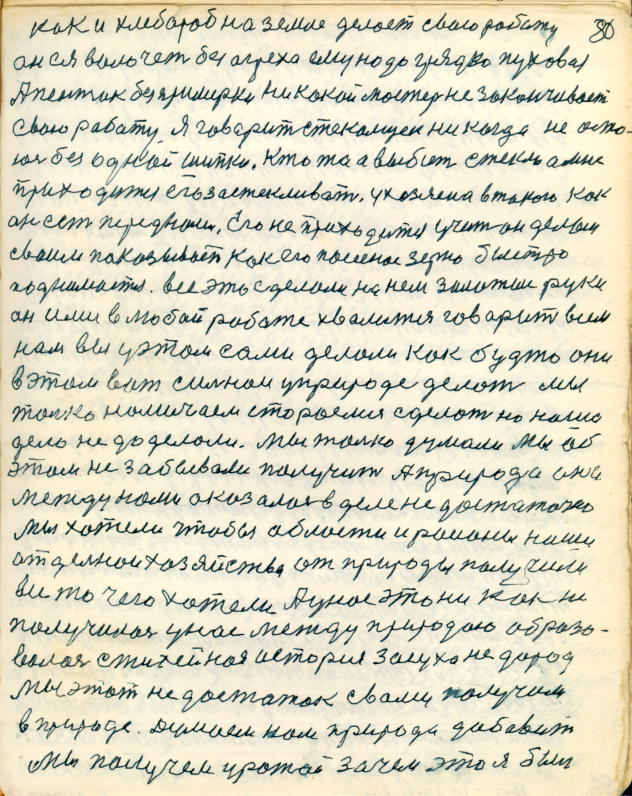 как и хлебароб на земле делает сваю работу 80
он ся волочет без огреха ему надо грядка пуховая
А пентюк без примирки никокой мастер не закончивает
сваю работу, я говарит стекольщек никогда не оста-
юся без одной шипки. Кто та а выбьет стекль а мне
приходится его застекливат. у хозяена в такого как
он сет перед нами. Его не приходится учит он делам
своим показывает как его посеное зерно быстро
поднимается. все это сделали на нем золотые руки
он ими в любой работе хвалится говарит всем
нам вы у этом сами делали как будто они
в этом вот силной уприроде делают мы
толко начинаем стороемся сделат но наша
дело не доделали. Мы толко думали мы об
этом не забывали получит А природа она
между нами оказалась в деле не достаточко
мы хотели чтобы области и районы наши
отделнои хозяйства от природы получили
все то чего хотели А у нас это ни как не
получилася у нас между природаю образо-
валася стихейная история засуха не дород
мы этот не достаток сваими получили
в природе. Думаем нам природа добавит
мы получем урожай зачем это я был